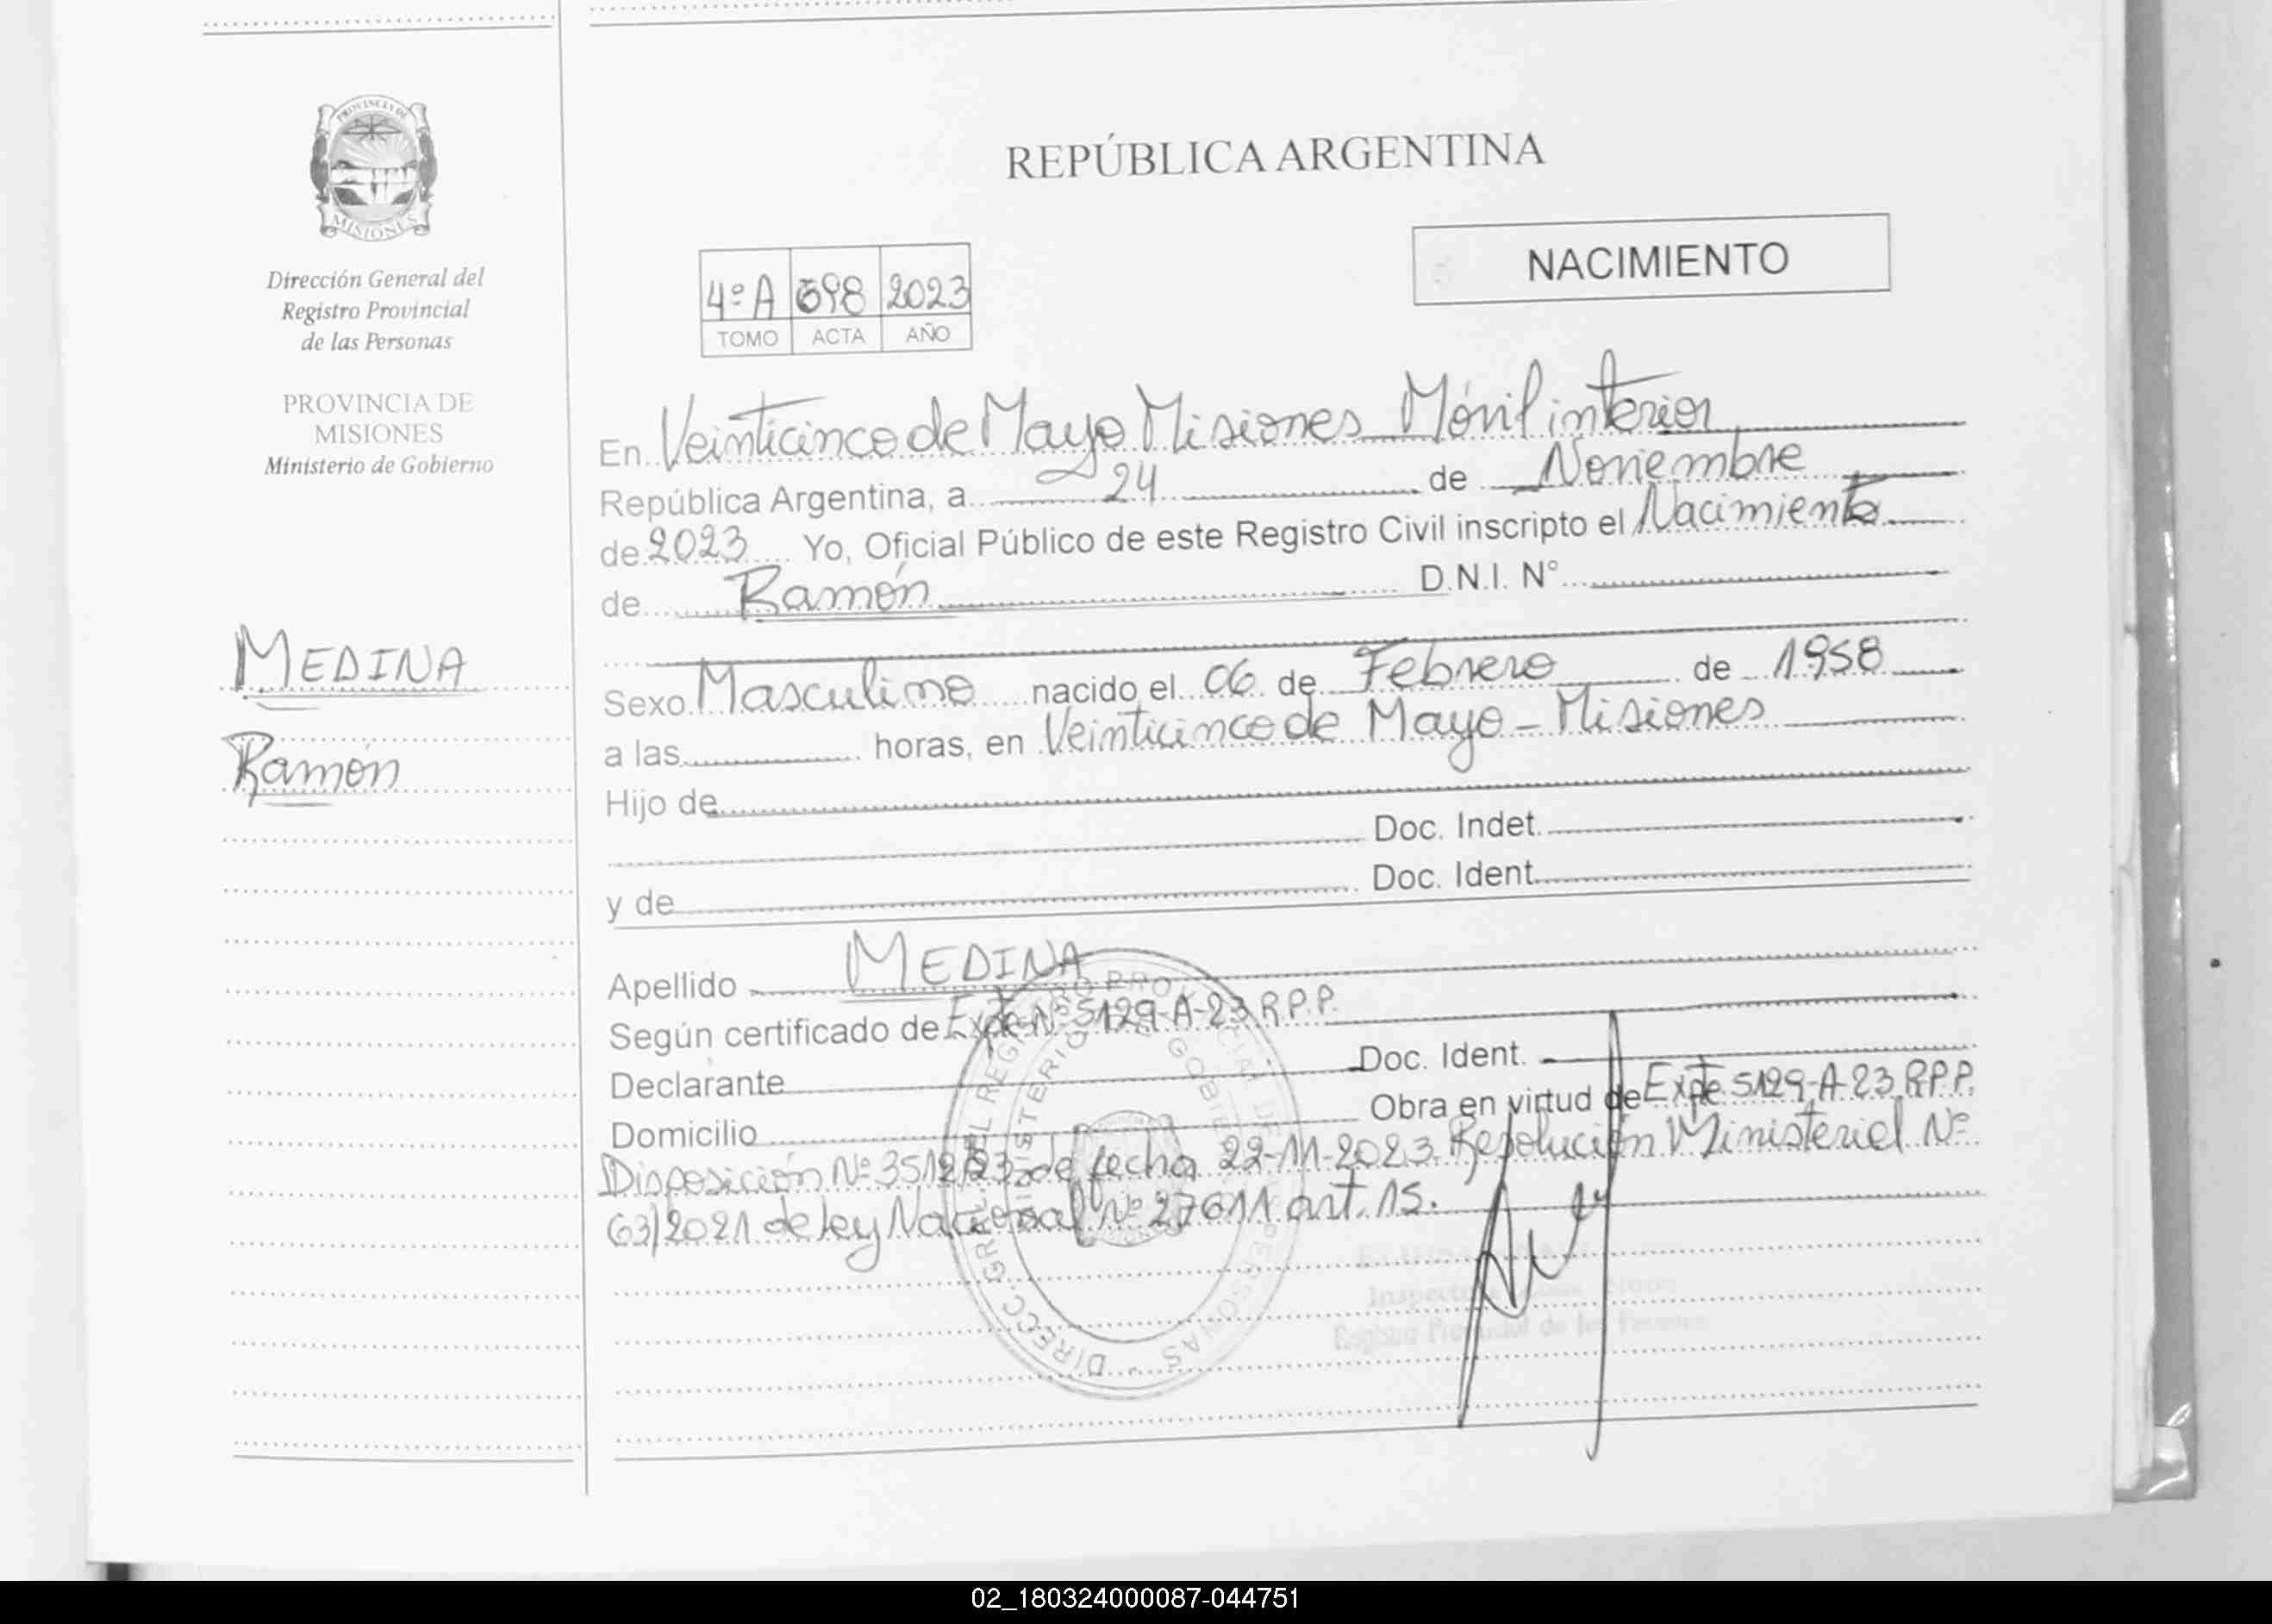 PROVINCIA DE
MISIONES
Dirección General del
Registro Provincial
de las Personas
PROVINCIA DE
MISIONES
Ministerio de Gobierno
MEDINA
Ramón
REPÚBLICA ARGENTINA
NACIMIENTO
4º A 698 2023
TOMO ACTA AÑO
En Veinticinco de Mayo Misiones Móvil interior
República Argentina, a 24 de Noviembre
de 2023 Yo, Oficial Público de este Registro Civil inscripto el Nacimiento
de Ramón D.N.I. N°
Sexo Masculino nacido el 06 de Febrero de 1958
a las horas, en Veinticinco de Mayo - Misiones
Hijo de
Doc. Indet.
y de Doc. Ident.
Apellido MEDINA
Según certificado de Expte Nº 5129-A-23 R.P.P.
Declarante Doc. Ident.
Domicilio Obra en virtud de Expte 5129-A-23 R.P.P.
Disposición Nº 3512/23 de fecha 22-11-2023 Resolución Ministerial Nº
63/2021 de ley Nacional Nº 27611 art. 15.
DIRECC. GRAL. DEL REGISTRO PROVINCIAL DE LAS PERSONAS
MINISTERIO DE GOBIERNO
Registro Provincial de las Personas
02_180324000087-044751